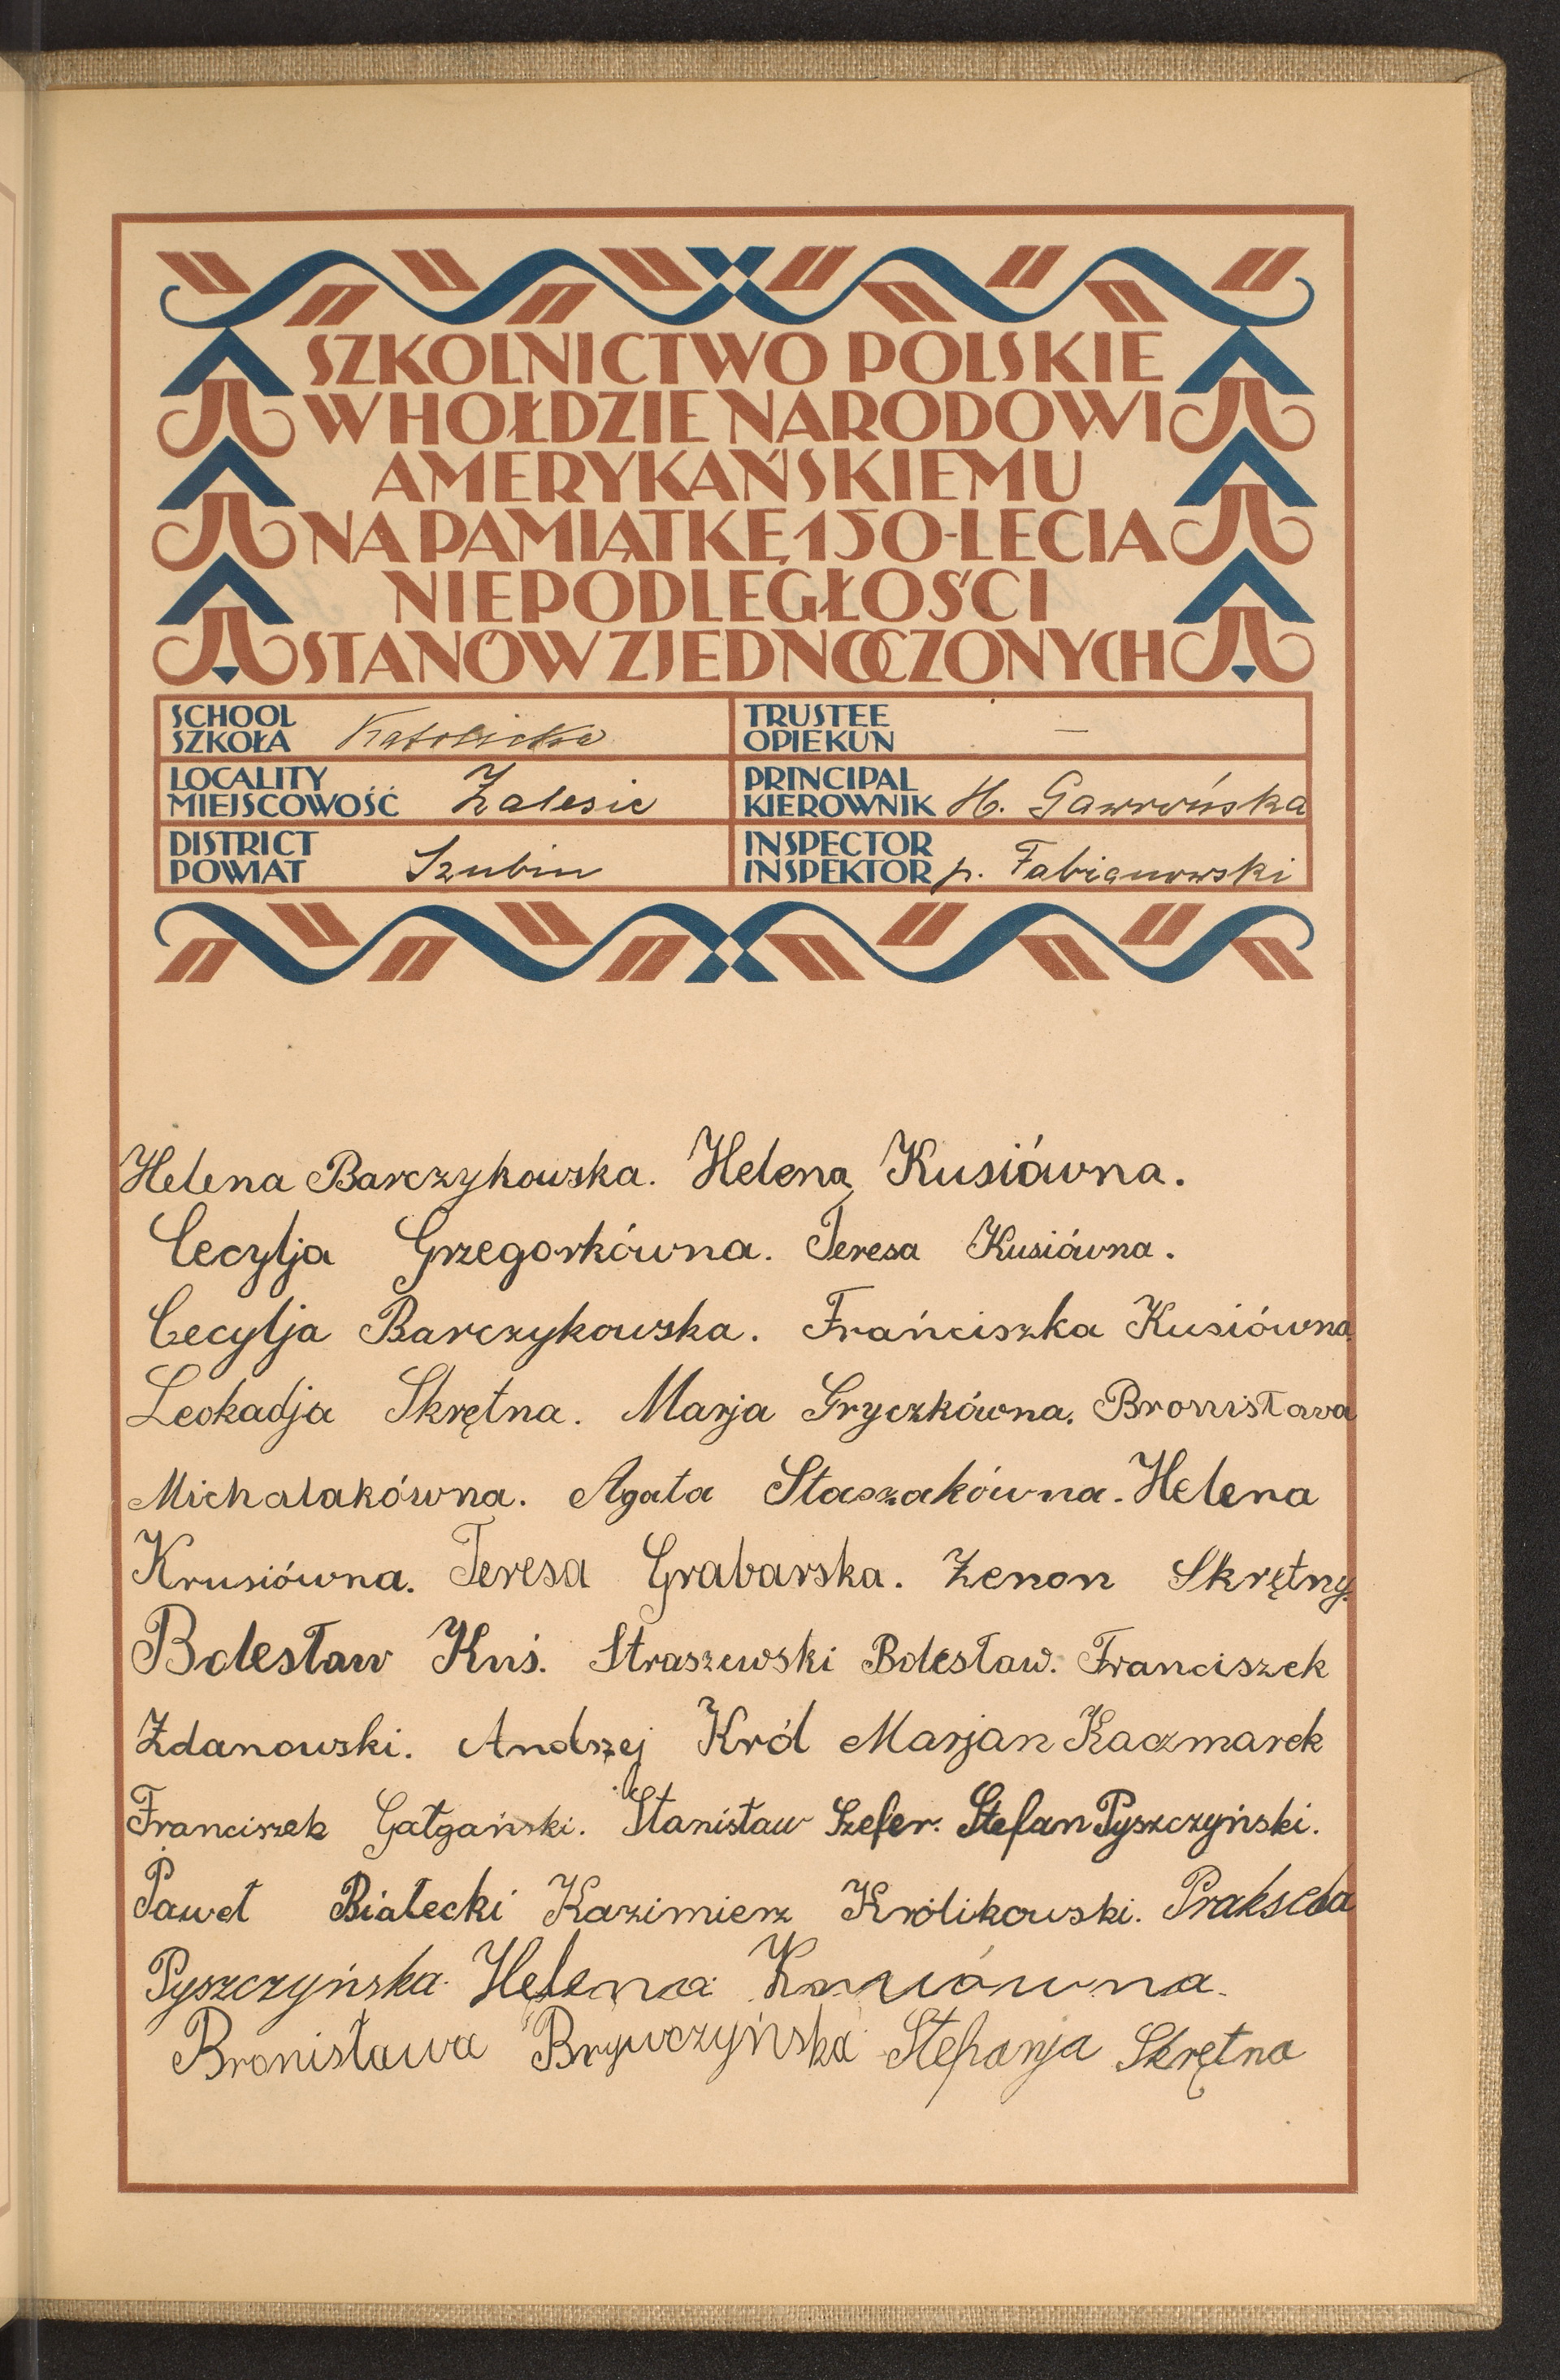 SZKOLNICTWO POLSKIE
W HOŁDZIE NARODOWI
AMERYKAŃSKIEMU
NA PAMIĄTKĘ 150-LECIA
NIEPODLEGŁOŚCI
STANÓW ZJEDNOCZONYCH
SCHOOL
SZKOŁA Katolicka
TRUSTEE
OPIEKUN —
LOCALITY
MIEJSCOWOŚĆ Zalesie
PRINCIPAL
KIEROWNIK H. Gawrońska
DISTRICT
POWIAT Szubin
INSPECTOR
INSPEKTOR p. Fabianowski
Helena Barczykowska. Helena Kusiówna.
Cecylja Grzegorkówna. Teresa Kusiówna.
Cecylja Barczykowska. Frańciszka Kusiówna.
Leokadja Skrętna. Marja Gryczkówna. Bronisława
Michalakówna. Agata Staszakówna. Helena
Krusiówna. Teresa Grabarska. Zenon Skrętny.
Bolesław Kuś. Straszewski Bolesław. Franciszek
Zdanowski. Andrzej Król Marjan Kaczmarek
Franciszek Gałgański. Stanisław Szefer. Stefan Pyszczyński.
Paweł Białecki Kazimierz Królikowski. Prakseda
Pyszczyńska. Helena
Bronisława Brywczyńska Stefanja Skrętna